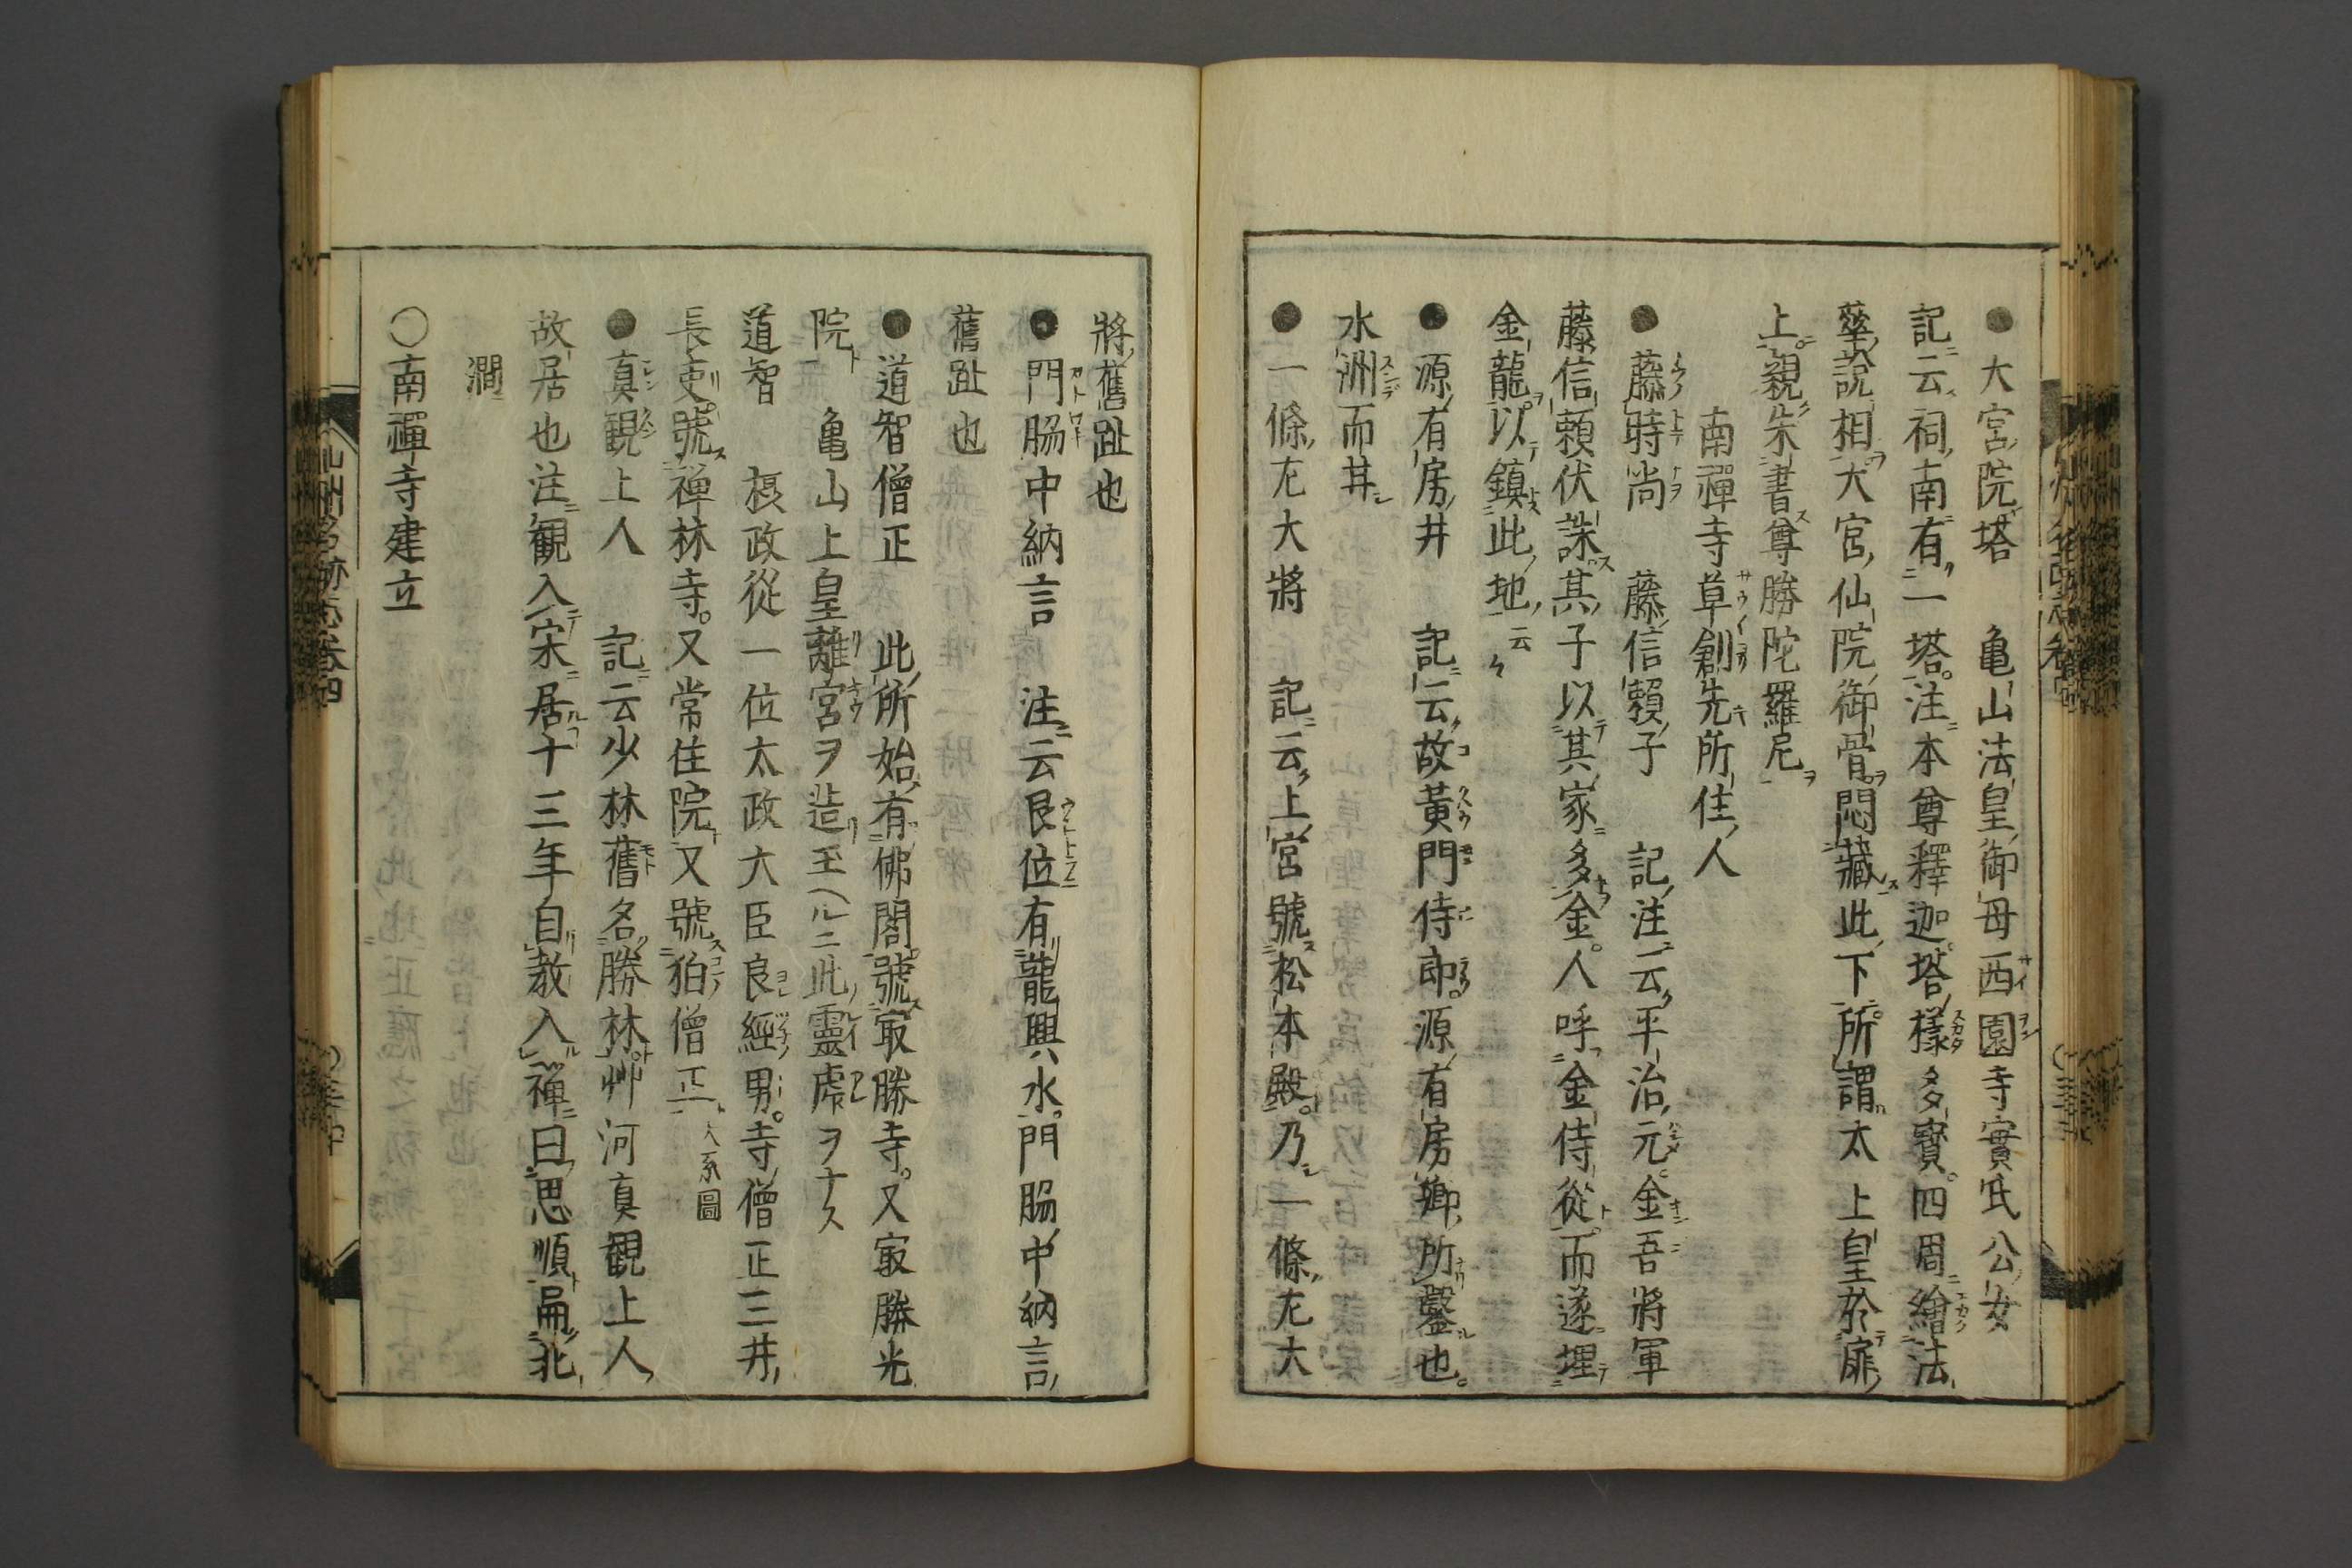 ● 大宮院塔 亀山法皇御母西園寺實氏公女
記云祠南有一塔注本尊釋迦塔樣多寳四周繪法
華說相大宮仙院御骨悶藏此下所謂太上皇於扉
上親朱書尊勝陀羅尼
南禪寺草創先所住人
● 藤時尚 藤信頼子 記注云平治元金吾將軍
藤信頼伏誅其子以其家多金人呼金侍從而遂埋
金龍以鎮此地云々
● 源有房井 記云故黃門侍郎源有房卿所鑿也
水洲而井
● 一條左大將 記云上宮號松本殿乃一條左大
將舊趾也
● 門脇中納言 注云艮位有龍興水門脇中納言
舊趾也
● 道智僧正 此所始有佛閣號最勝寺又最勝光
院 亀山上皇離宮ヲ造玉ヘル二此靈處ヲナス
道智 摂政從一位太政大臣良經男寺僧正三井
長吏號禅林寺又常住院又號狛僧正 大系圖
● 真観上人 記云少林舊名勝林艸河真観上人
故居也注観入宋居十三年自教入禅曰思順扁北
澗
○南禪寺建立
仙洲名跡志卷四